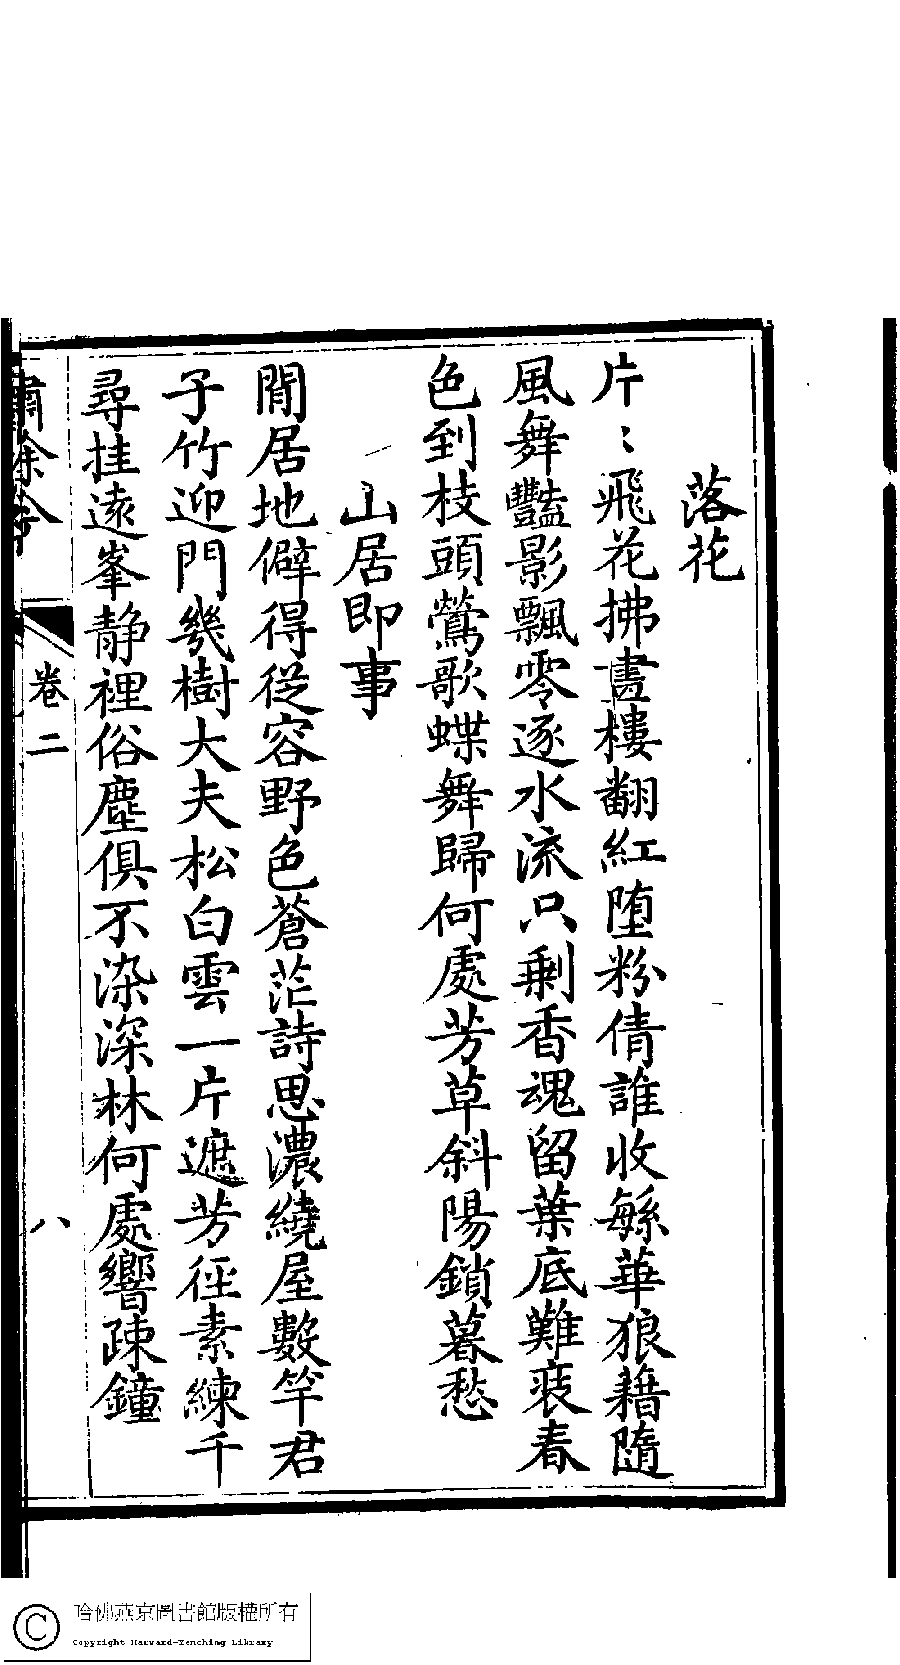 落花
片〻飛花拂畫樓翻紅堕粉倩誰收繁華狼藉隨
風舞豔影飄零逐水流只剩香魂留葉底難裝春
色到枝頭鶯歌蝶舞歸何處芳草斜陽鎖暮愁
山居即事
閒居地僻得從容野色蒼茫詩思濃繞屋數竿君
子竹迎門幾樹大夫松白雲一片遮芳徑素練千
尋挂遠峯静裡俗塵俱不染深林何處響疎鐘
卷二
八
哈佛燕京圖書館版權所有
Copyright Harvard-Yenching Library